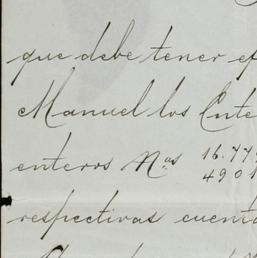 que debe tener ef
Manuel los Ente
enteros Nos 16.449
4901
respectivas cuenta